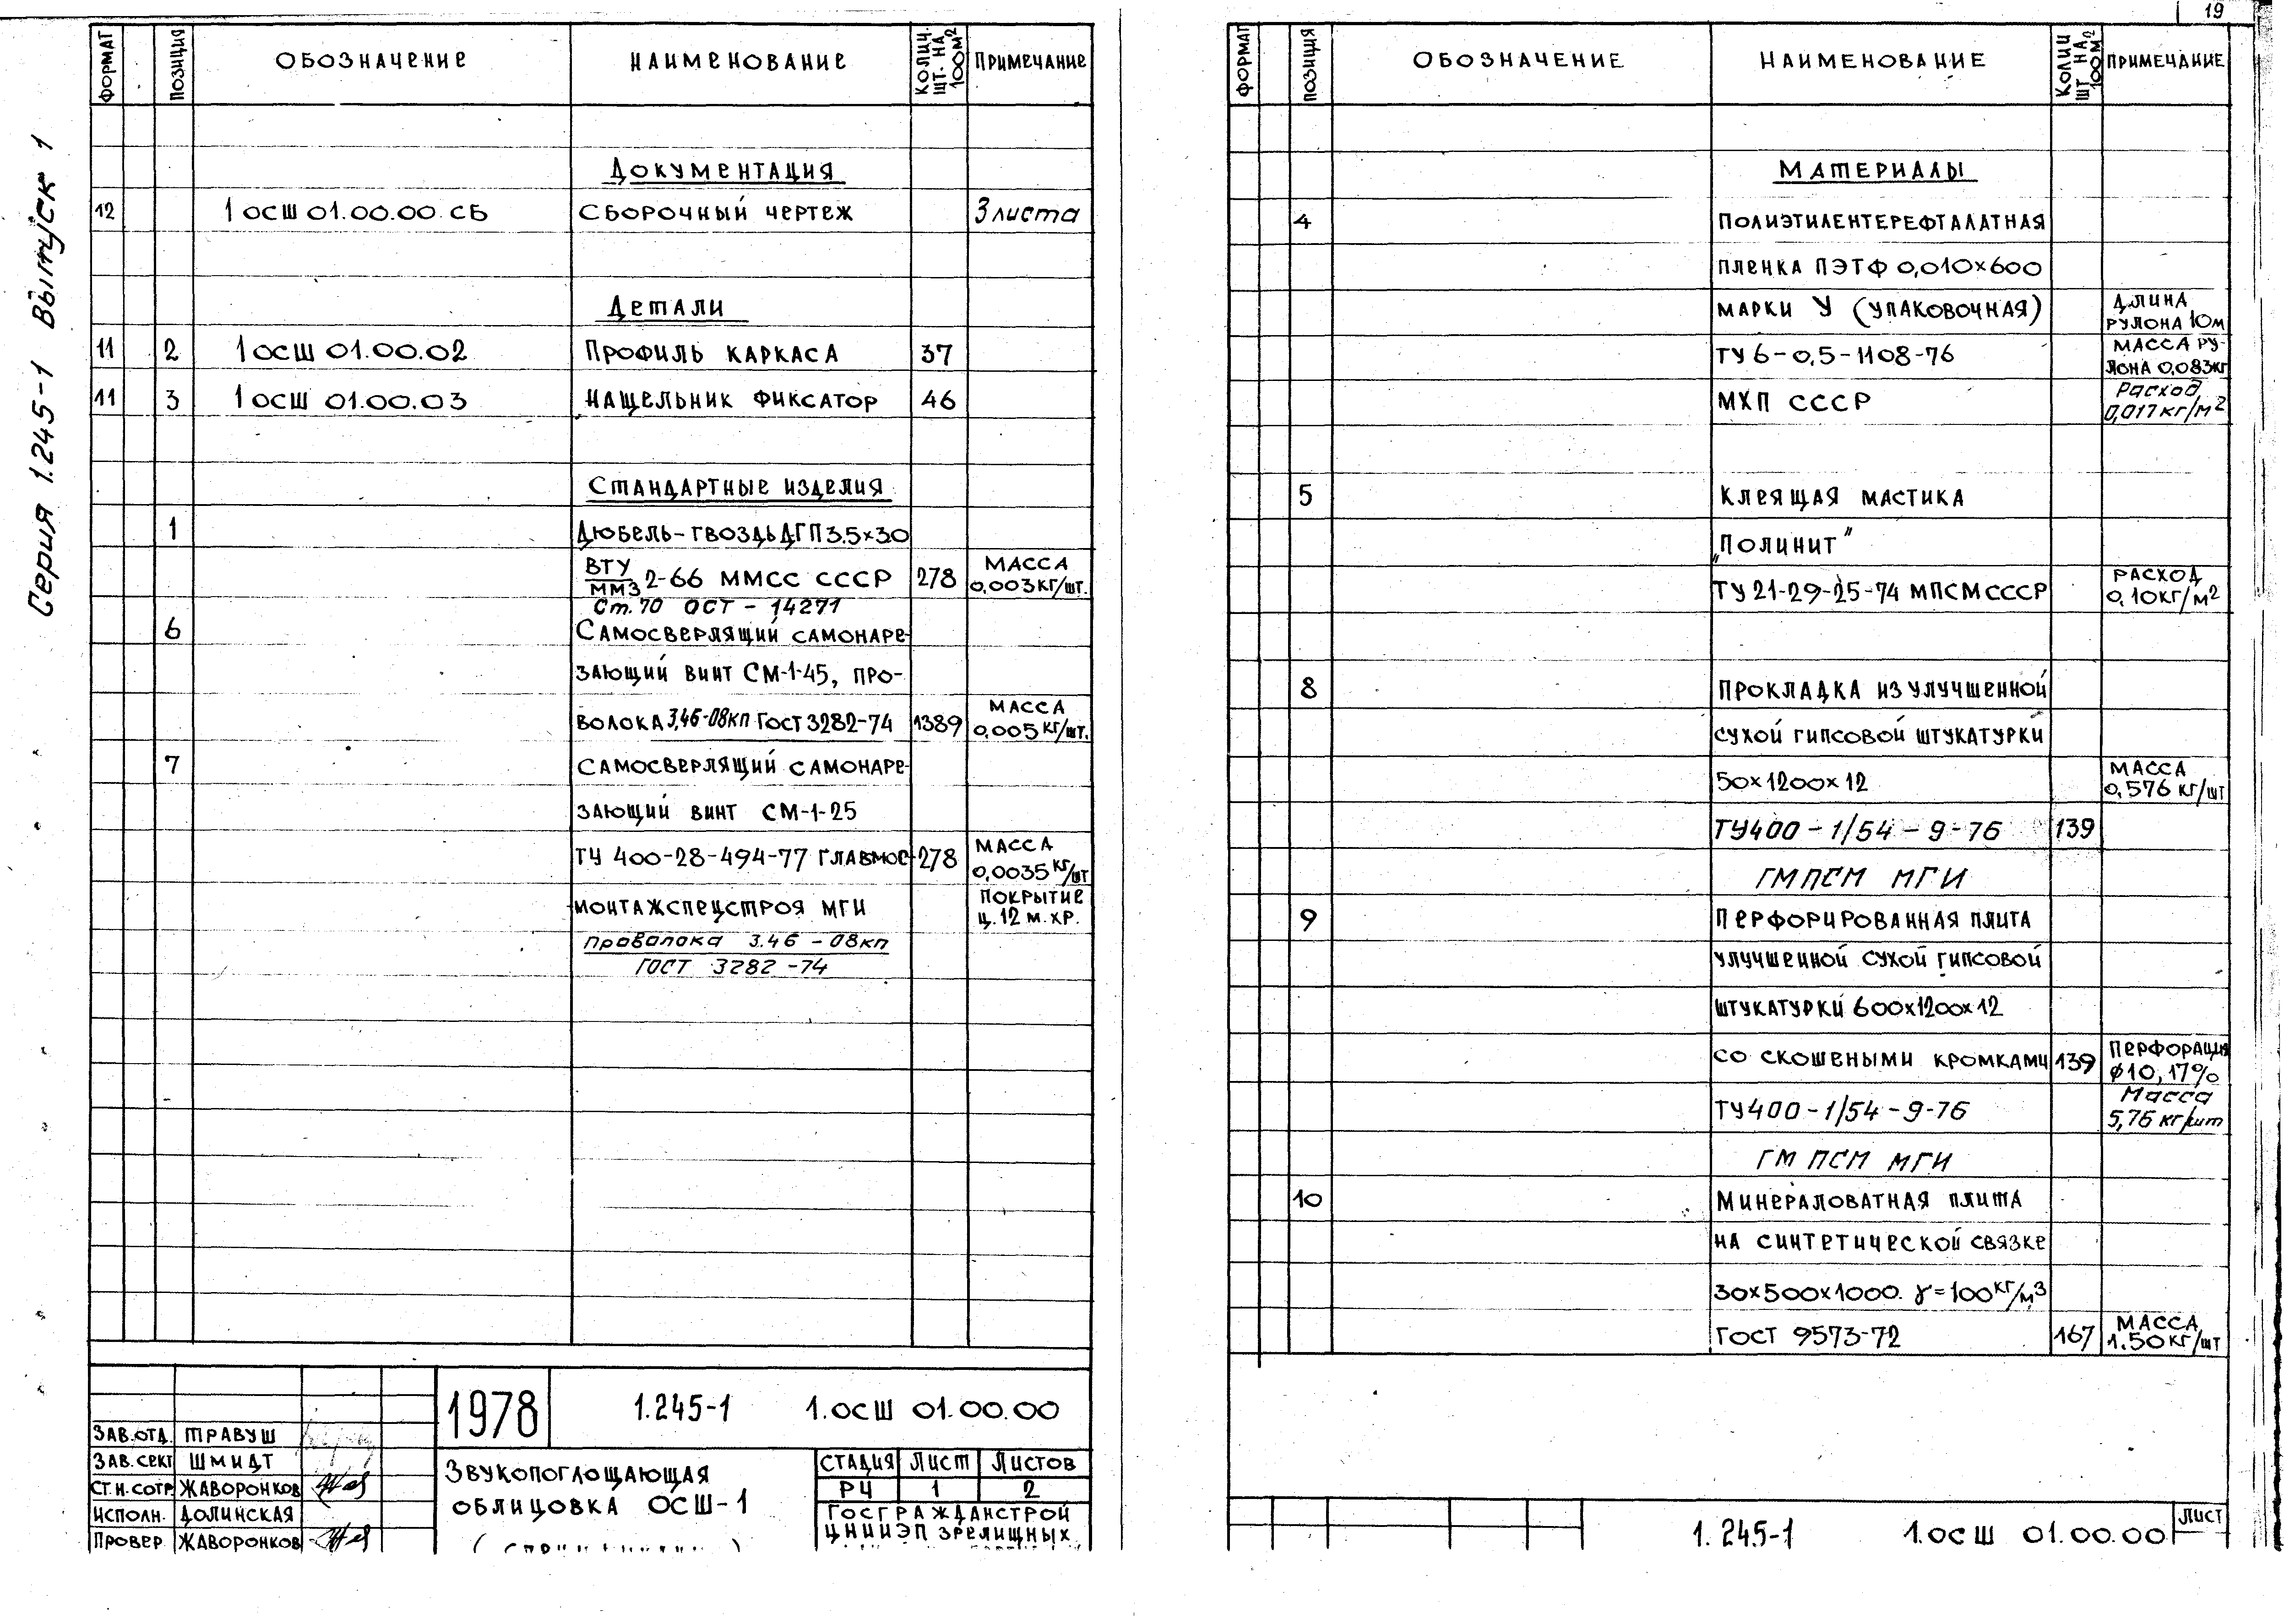 Серия 1.245-1 Выпуск 1
ФОРМАТ ПОЗИЦИЯ ОБОЗНАЧЕНИЕ НАИМЕНОВАНИЕ КОЛИЧ. ШТ. НА 100М2 ПРИМЕЧАНИЕ
ДОКУМЕНТАЦИЯ
12 1 ОСШ 01.00.00 СБ СБОРОЧНЫЙ ЧЕРТЕЖ 3 листа
ДЕТАЛИ
11 2 1 ОСШ 01.00.02 ПРОФИЛЬ КАРКАСА 37
11 3 1 ОСШ 01.00.03 НАЩЕЛЬНИК ФИКСАТОР 46
СТАНДАРТНЫЕ ИЗДЕЛИЯ
1 ДЮБЕЛЬ-ГВОЗДЬ ДГП 3.5×30
ВТУ/ММЗ 2-66 ММСС СССР 278 МАССА 0,003КГ/ШТ.
Ст.70 ОСТ - 14271
6 САМОСВЕРЛЯЩИЙ САМОНАРЕ-
ЗАЮЩИЙ ВИНТ СМ-1-45, ПРО-
ВОЛОКА 3,46-08КП ГОСТ 3282-74 1389 МАССА 0,005 КГ/ШТ.
7 САМОСВЕРЛЯЩИЙ САМОНАРЕ-
ЗАЮЩИЙ ВИНТ СМ-1-25
ТУ 400-28-494-77 ГЛАВМОС- 278 МАССА 0,0035 КГ/ШТ
МОНТАЖСПЕЦСТРОЯ МГИ ПОКРЫТИЕ Ц.12 М.ХР.
проволока 3.46 - 08кп
ГОСТ 3282 - 74
1978 1.245-1 1.ОСШ 01.00.00
ЗАВ.ОТД. ТРАВУШ
ЗАВ.СЕКТ ШМИДТ
СТ.Н.СОТР. ЖАВОРОНКОВ
ИСПОЛН. ДОЛИНСКАЯ
ПРОВЕР ЖАВОРОНКОВ
ЗВУКОПОГЛОЩАЮЩАЯ
ОБЛИЦОВКА ОСШ-1
СТАДИЯ ЛИСТ ЛИСТОВ
РЧ 1 2
ГОСГРАЖДАНСТРОЙ
ЦНИИЭП ЗРЕЛИЩНЫХ
19
ФОРМАТ ПОЗИЦИЯ ОБОЗНАЧЕНИЕ НАИМЕНОВАНИЕ КОЛИЧ ШТ НА 100М2 ПРИМЕЧАНИЕ
МАТЕРИАЛЫ
4 ПОЛИЭТИЛЕНТЕРЕФТАЛАТНАЯ
ПЛЕНКА ПЭТФ 0,010×600
МАРКИ У (УПАКОВОЧНАЯ) ДЛИНА РУЛОНА 10М
ТУ 6-0,5-1108-76 МАССА РУ-ЛОНА 0,083КГ
МХП СССР Расход 0,017 кг/м2
5 КЛЕЯЩАЯ МАСТИКА
„ПОЛИНИТ"
ТУ 21-29-25-74 МПСМ СССР РАСХОД 0,10КГ/М2
8 ПРОКЛАДКА ИЗ УЛУЧШЕННОЙ
СУХОЙ ГИПСОВОЙ ШТУКАТУРКИ
50×1200×12 МАССА 0,576 КГ/ШТ
ТУ400 - 1/54 - 9-76 139
ГМПСМ МГИ
9 ПЕРФОРИРОВАННАЯ ПЛИТА
УЛУЧШЕННОЙ СУХОЙ ГИПСОВОЙ
ШТУКАТУРКИ 600×1200×12
СО СКОШЕНЫМИ КРОМКАМИ 139 ПЕРФОРАЦИЯ ϕ10, 17%
ТУ400 - 1/54 - 9-76 Масса 5,76 кг/шт
ГМ ПСМ МГИ
10 МИНЕРАЛОВАТНАЯ ПЛИТА
НА СИНТЕТИЧЕСКОЙ СВЯЗКЕ
30×500×1000. γ=100КГ/М3
ГОСТ 9573-72 167 МАССА 1.50 КГ/ШТ
1.245-1 1.ОСШ 01.00.00 ЛИСТ